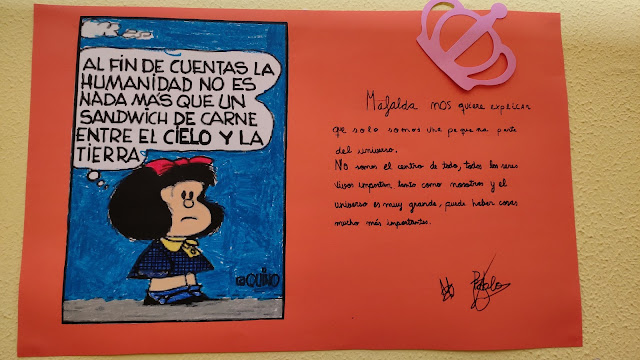 AL FIN DE CUENTAS LA
HUMANIDAD NO ES
NADA MÁS QUE UN
SANDWICH DE CARNE
ENTRE EL CIELO Y LA
TIERRA
QUINO
Mafalda nos quiere explicar
que solo somos una pequeña parte
del universo.
No somos el centro de todo, todos los seres
vivos importan tanto como nosotros y el
universo es muy grande, puede haber cosas
mucho más importantes.
Pablo